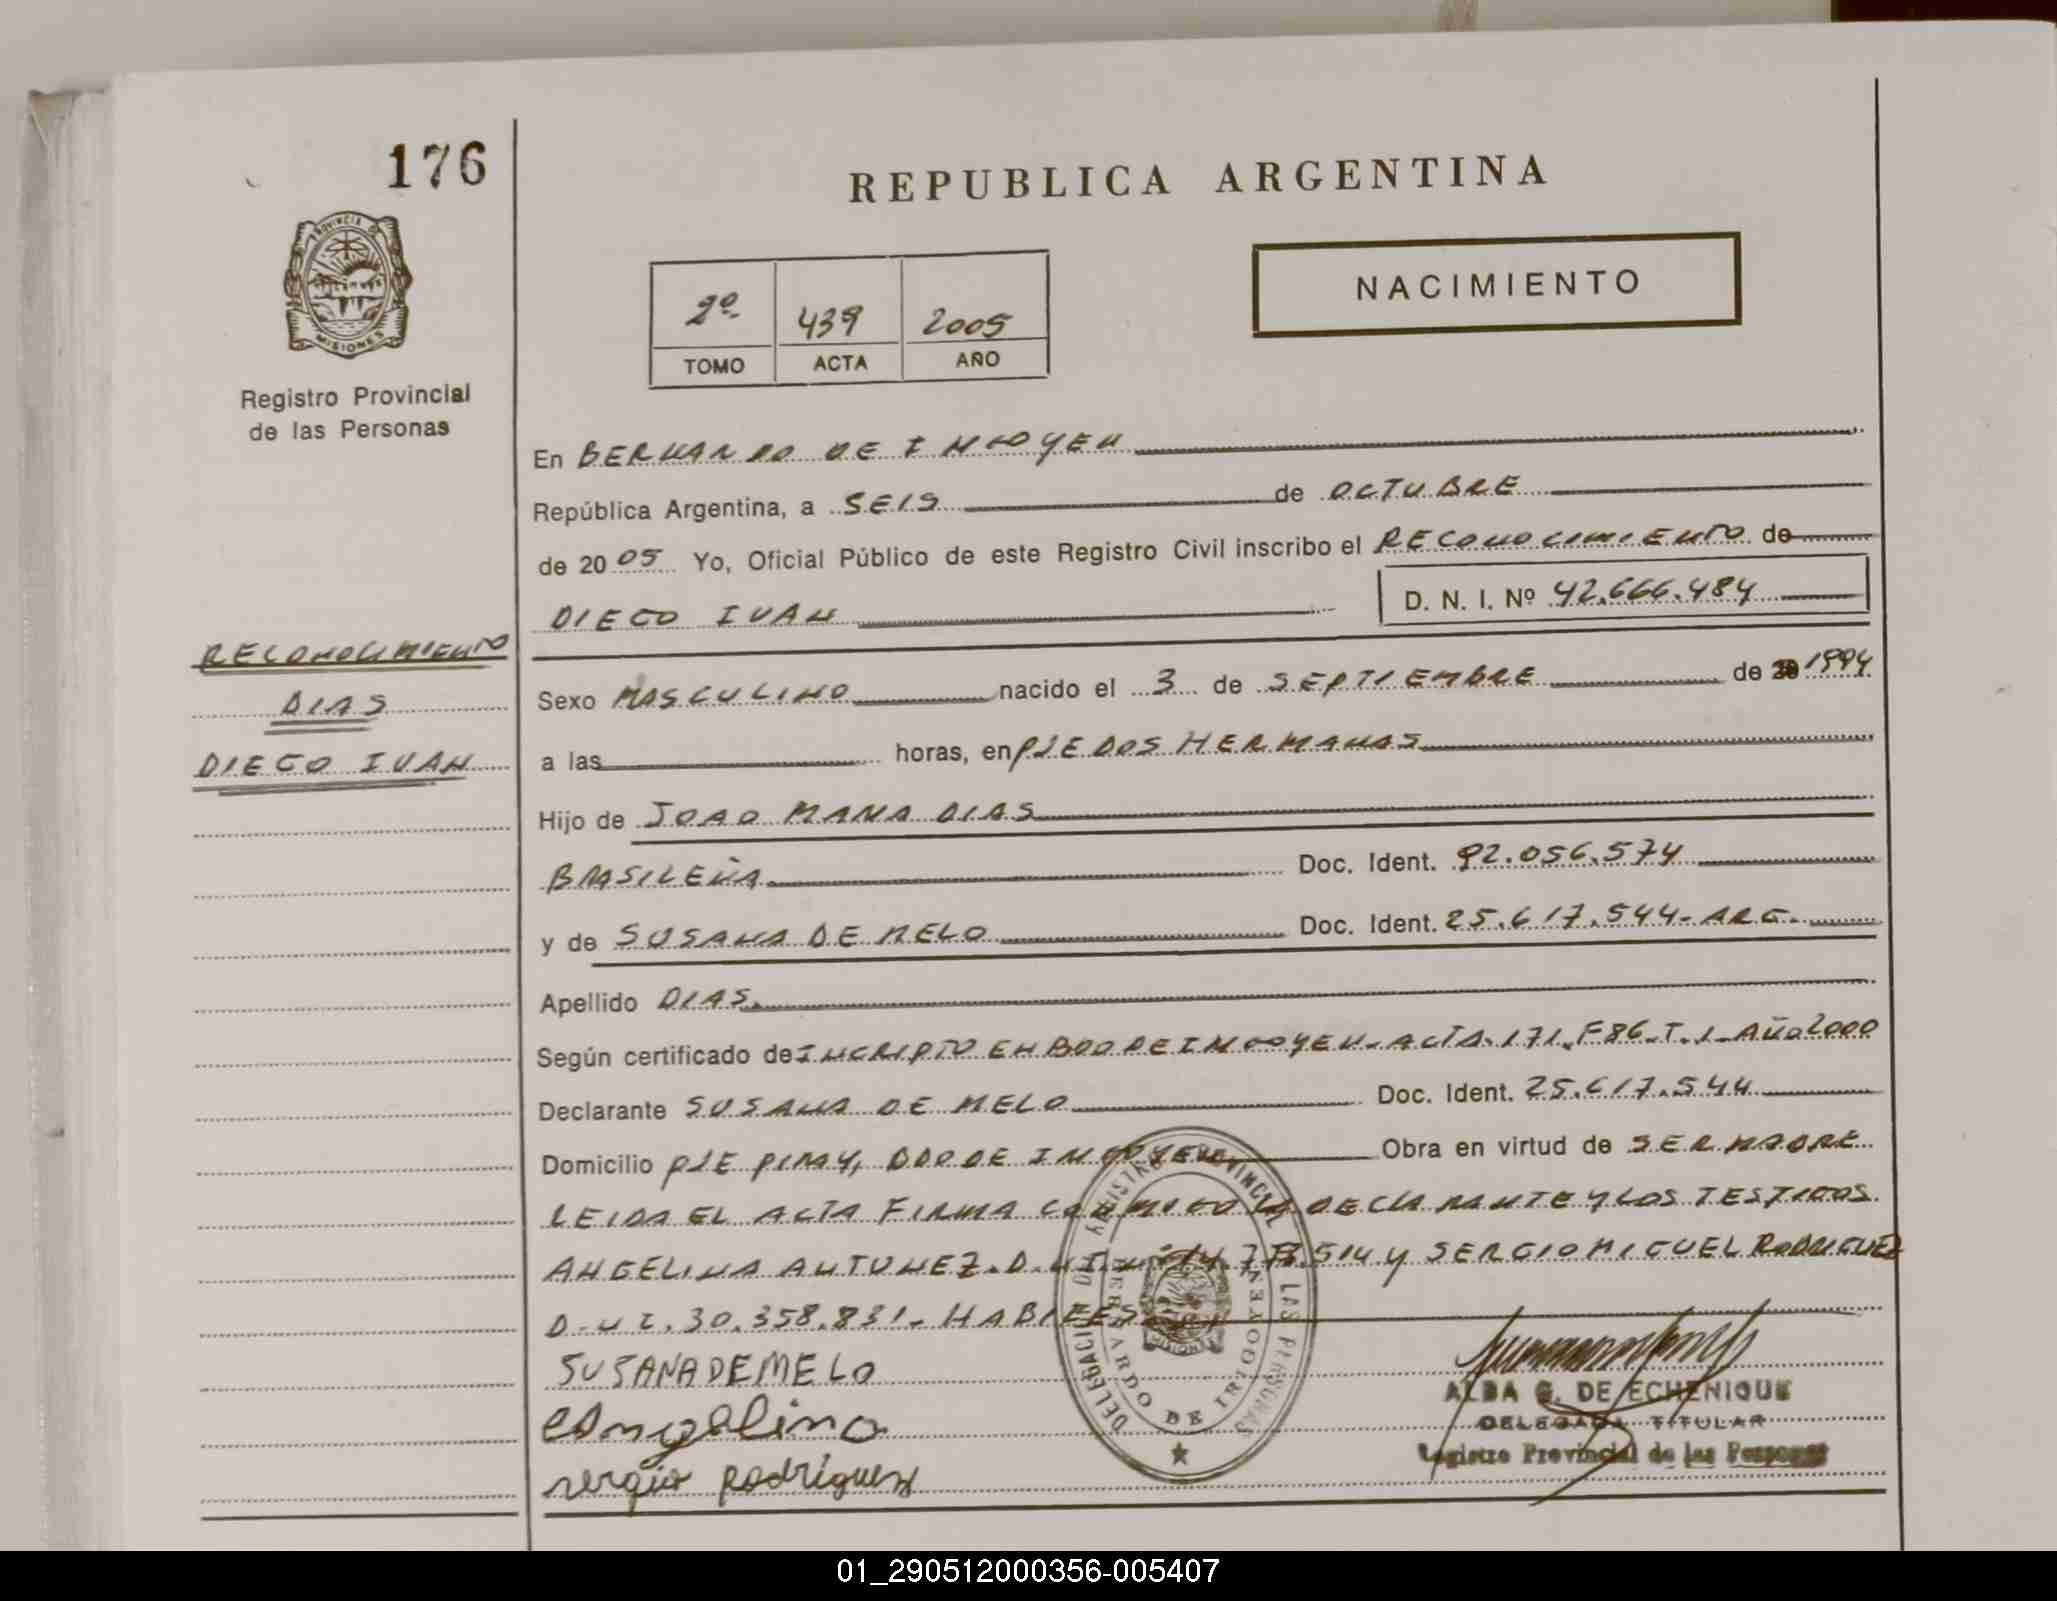 176
REPUBLICA ARGENTINA
PROVINCIA DE
MISIONES
Registro Provincial
de las Personas
2º 439 2005
TOMO ACTA AÑO
NACIMIENTO
En BERNARDO DE IRIGOYEN
República Argentina, a SEIS de OCTUBRE
de 2005 Yo, Oficial Público de este Registro Civil inscribo el RECONOCIMIENTO de
DIEGO IVAN D. N. I. Nº 42.666.484
RECONOCIMIENTO
DIAS
DIEGO IVAN
Sexo MASCULINO nacido el 3 de SEPTIEMBRE de 1994
a las horas, en PJE DOS HERMANAS
Hijo de JOAO MARIA DIAS
BRASILEÑA Doc. Ident. 92.056.574
y de SUSANA DE MELO Doc. Ident. 25.617.544-ARG.
Apellido DIAS
Según certificado de INCRIPTO EN BDO DE IRIGOYEN-ACTA.171.F86-T.1-AÑO2000
Declarante SUSANA DE MELO Doc. Ident. 25.617.544
Domicilio PJE PIRAY, BDO DE IRIGOYEN Obra en virtud de SER MADRE
LEIDA EL ACTA FIRMA CONMIGO LA DECLARANTE Y LOS TESTIGOS
ANGELINA ANTUNEZ.D.N.I. 514 y SERGIO MIGUEL RODRIGUEZ
D.N.I.30.358.831-HABILES
SUSANA DE MELO
Angelina
sergio rodriguez
DELEGACION DEL REGISTRO PROVINCIAL DE LAS PERSONAS
BERNARDO DE IRIGOYEN
MISIONES
ALBA G. DE ECHENIQUE
DELEGADA TITULAR
Registro Provincial de las Personas
01_290512000356-005407